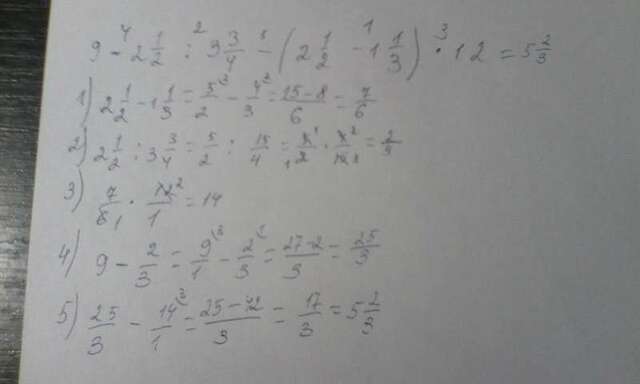 9 - 2 1/2 : 3 3/4 - (2 1/2 - 1 1/3) · 12 = 5 2/3
1) 2 1/2 - 1 1/3 = 5/2 - 4/3 = 15-8/6 = 7/6
2) 2 1/2 : 3 3/4 = 5/2 : 15/4 = = 2/3
3) 7/6 · 12/1 = 14
4) 9 - 2/3 = 9/1 - 2/3 = 27-2/3 = 25/3
5) 25/3 - 14/1 = = 17/3 = 5 2/3